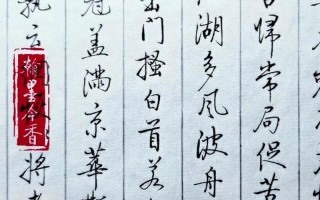 告归常局促苦
江湖多风波舟
出门搔白首若
冠盖满京华斯
孰云 将老
翰墨今香